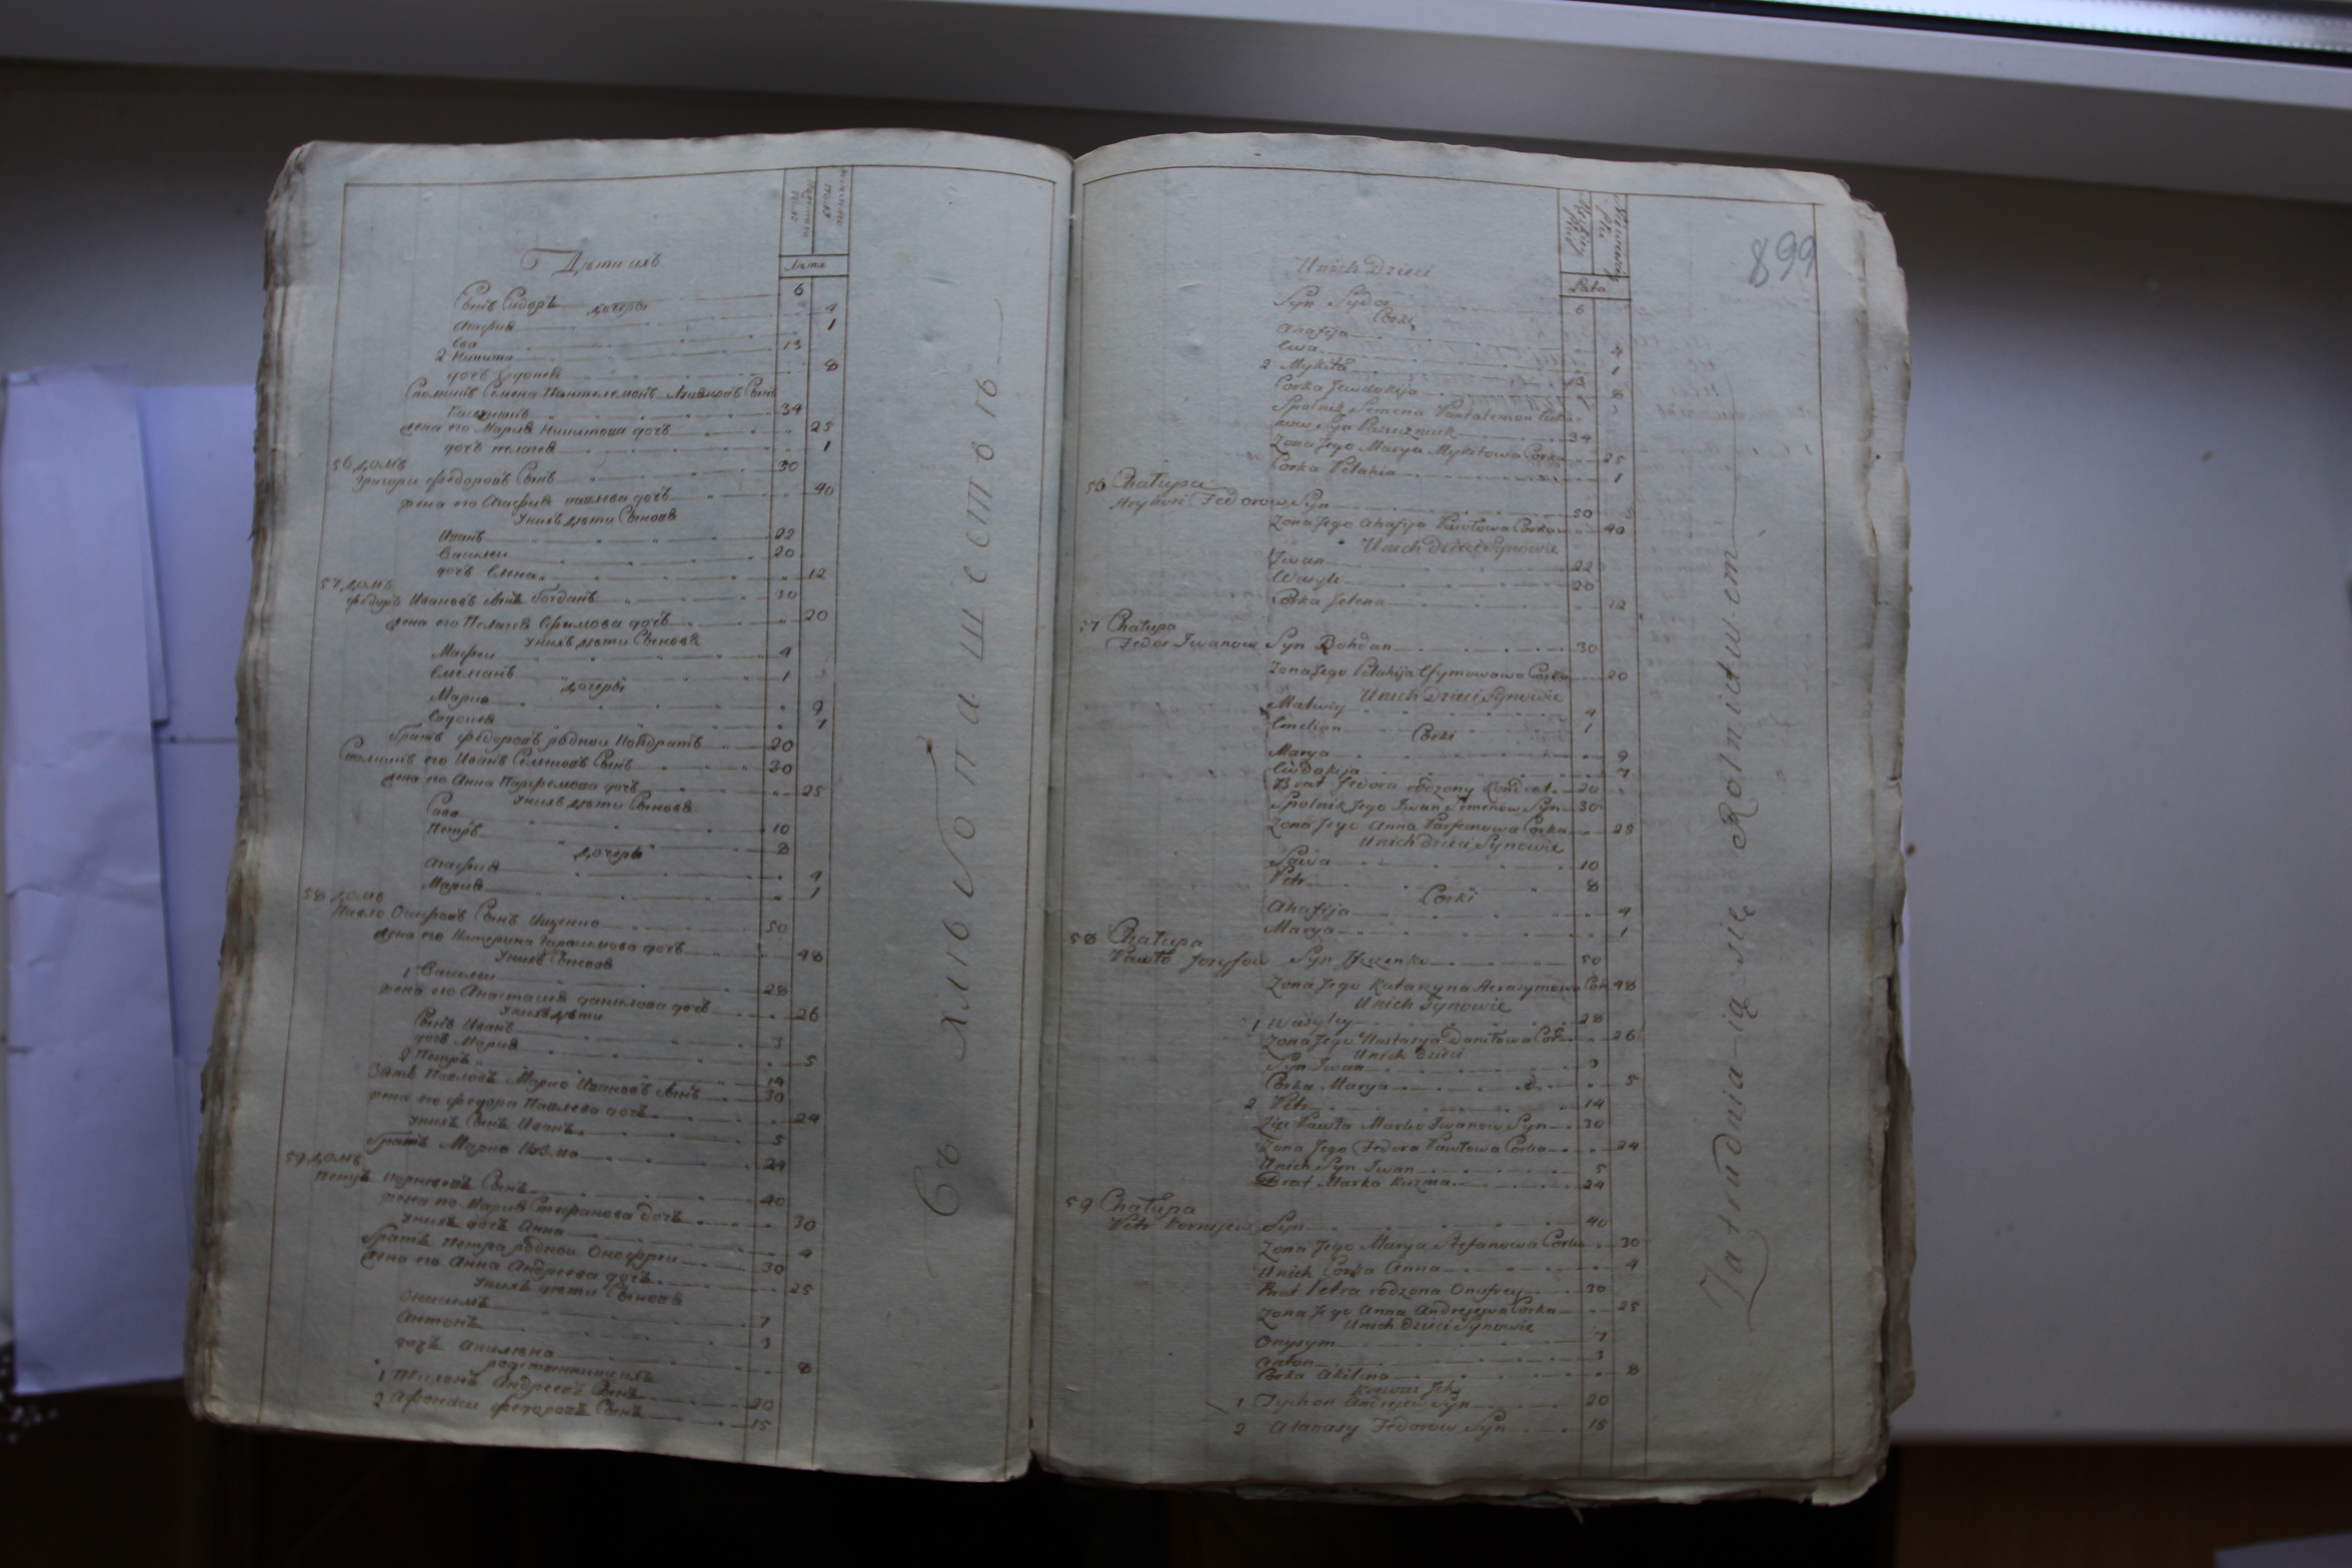 Мужеска полу
Женска полу
Лета
Дѣти ихъ
Сынъ Сидоръ 6
дочери
Агафия 4
Ева 1
2 Никита 13
дочъ Евдокея 8
Спольникъ Семена Пантелемонъ Сынъ
34
жена его Мария Никитова дочъ 25
дочъ Пелагея 1
56 домъ
Григори Федоровъ Сынъ 30
жена его Агафия Павлова дочъ 40
у нихъ дѣти Сыновя
Иванъ 22
Василеи 20
дочъ Елена 12
57 домъ
Федоръ Ивановъ Сынъ Богданъ 30
жена его Пелагея Ефимова дочъ 20
у нихъ дѣти Сыновя
Матфеи 4
Емелианъ 1
дочеры
Мария 9
Евдокея 7
братъ Федоровъ родной Кондратъ 20
Спольникъ его Иванъ Семеновъ Сынъ 30
жена его Анна Парфемова дочъ 25
у нихъ дѣти Сыновя
Сава 10
Петръ 8
дочеры
Агафия 4
Мария 1
58 домъ
Павло Осифовъ Сынъ Ищенко 50
жена его Катерина Гарасимова дочъ 48
у нихъ Сыновя
1 Василеи 28
жена его Анастасия Данилова дочъ 26
у нихъ дѣти
Сынъ Иванъ 3
дочъ Мария 5
2 Петръ 14
Зять Павловъ Марко Ивановъ Сынъ 30
жена его Федора Павлова дочъ 24
у нихъ Сынъ Иванъ 5
братъ Марка Козма 24
59 домъ
Петръ Корнеевъ Сынъ 40
жена его Мария Стефанова дочъ 30
у нихъ дочъ Анна 4
братъ Петра родной Онофреи 30
жена его Анна Андреева дочъ 25
у нихъ дѣти Сыновя
Онисимъ 7
Антонъ 3
дочъ Акилина 8
родственники ихъ
1 Тихонъ Андреевъ Сынъ 20
2 Афанасеи Федоровъ Сынъ 15
Въ хлѣбопашествѣ
899
Męskiey płci
Niewieściey płci
Lata
U nich Dzieci
Syn Sydor 6
Corki
Ahafija 4
Ewa 1
2 Mykita 13
Corka Jewdokija 8
Spolnik Semena Pantalemon
Syn 34
Zona Jego Marya Mykitowa Corka 25
Corka Pelahia 1
56 Chałupa
Hryhori Fedorow Syn 50
Zona Jego Ahafija Pawłowa Corka 40
U nich Dzieci Synowie
Jwan 22
Wasyli 20
Corka Jelena 12
57 Chałupa
Fedor Jwanow Syn Bohdan 30
Zona Jego Pelahija Efymowowa Corka 20
U nich Dzieci Synowie
Matwiy 4
Emelian 1
Corki
Marya 9
Ewdokija 7
Brat Fedora rodzony Kondrat 20
Spolnik Jego Jwan Semenow Syn 30
Zona Jego Anna Parfemowa Corka 25
U nich dzieci Synowie
Sawa 10
Petr 8
Corki
Ahafija 4
Marya 1
58 Chałupa
Pawło Jozyfow Syn Iszczenko 50
Zona Jego Katarzyna Herasymowa Cor. 48
U nich Synowie
1 Wasyley 28
Zona Jego Nastasya Daniłowa Cor. 26
U nich Dzieci
Syn Jwan 3
Corka Marya 5
2 Petr 14
Zięć Pawła Marko Jwanow Syn 30
Zona Jego Fedora Pawłowa Corka 24
U nich Syn Jwan 5
Brat Marka Kuzma 24
59 Chałupa
Petr Kornijew Syn 40
Zona Jego Marya Stefanowa Corka 30
U nich Corka Anna 4
Brat Petra rodzona Onufrey 30
Zona Jego Anna Andrejewa Corka 25
U nich Dzieci Synowie
Onysym 7
Anton 3
Corka Akilina 8
Krewni Jch
1 Tychon Andrejew Syn 20
2 Atanasy Fedorow Syn 15
Zatrudnia ią się Rolnictwem